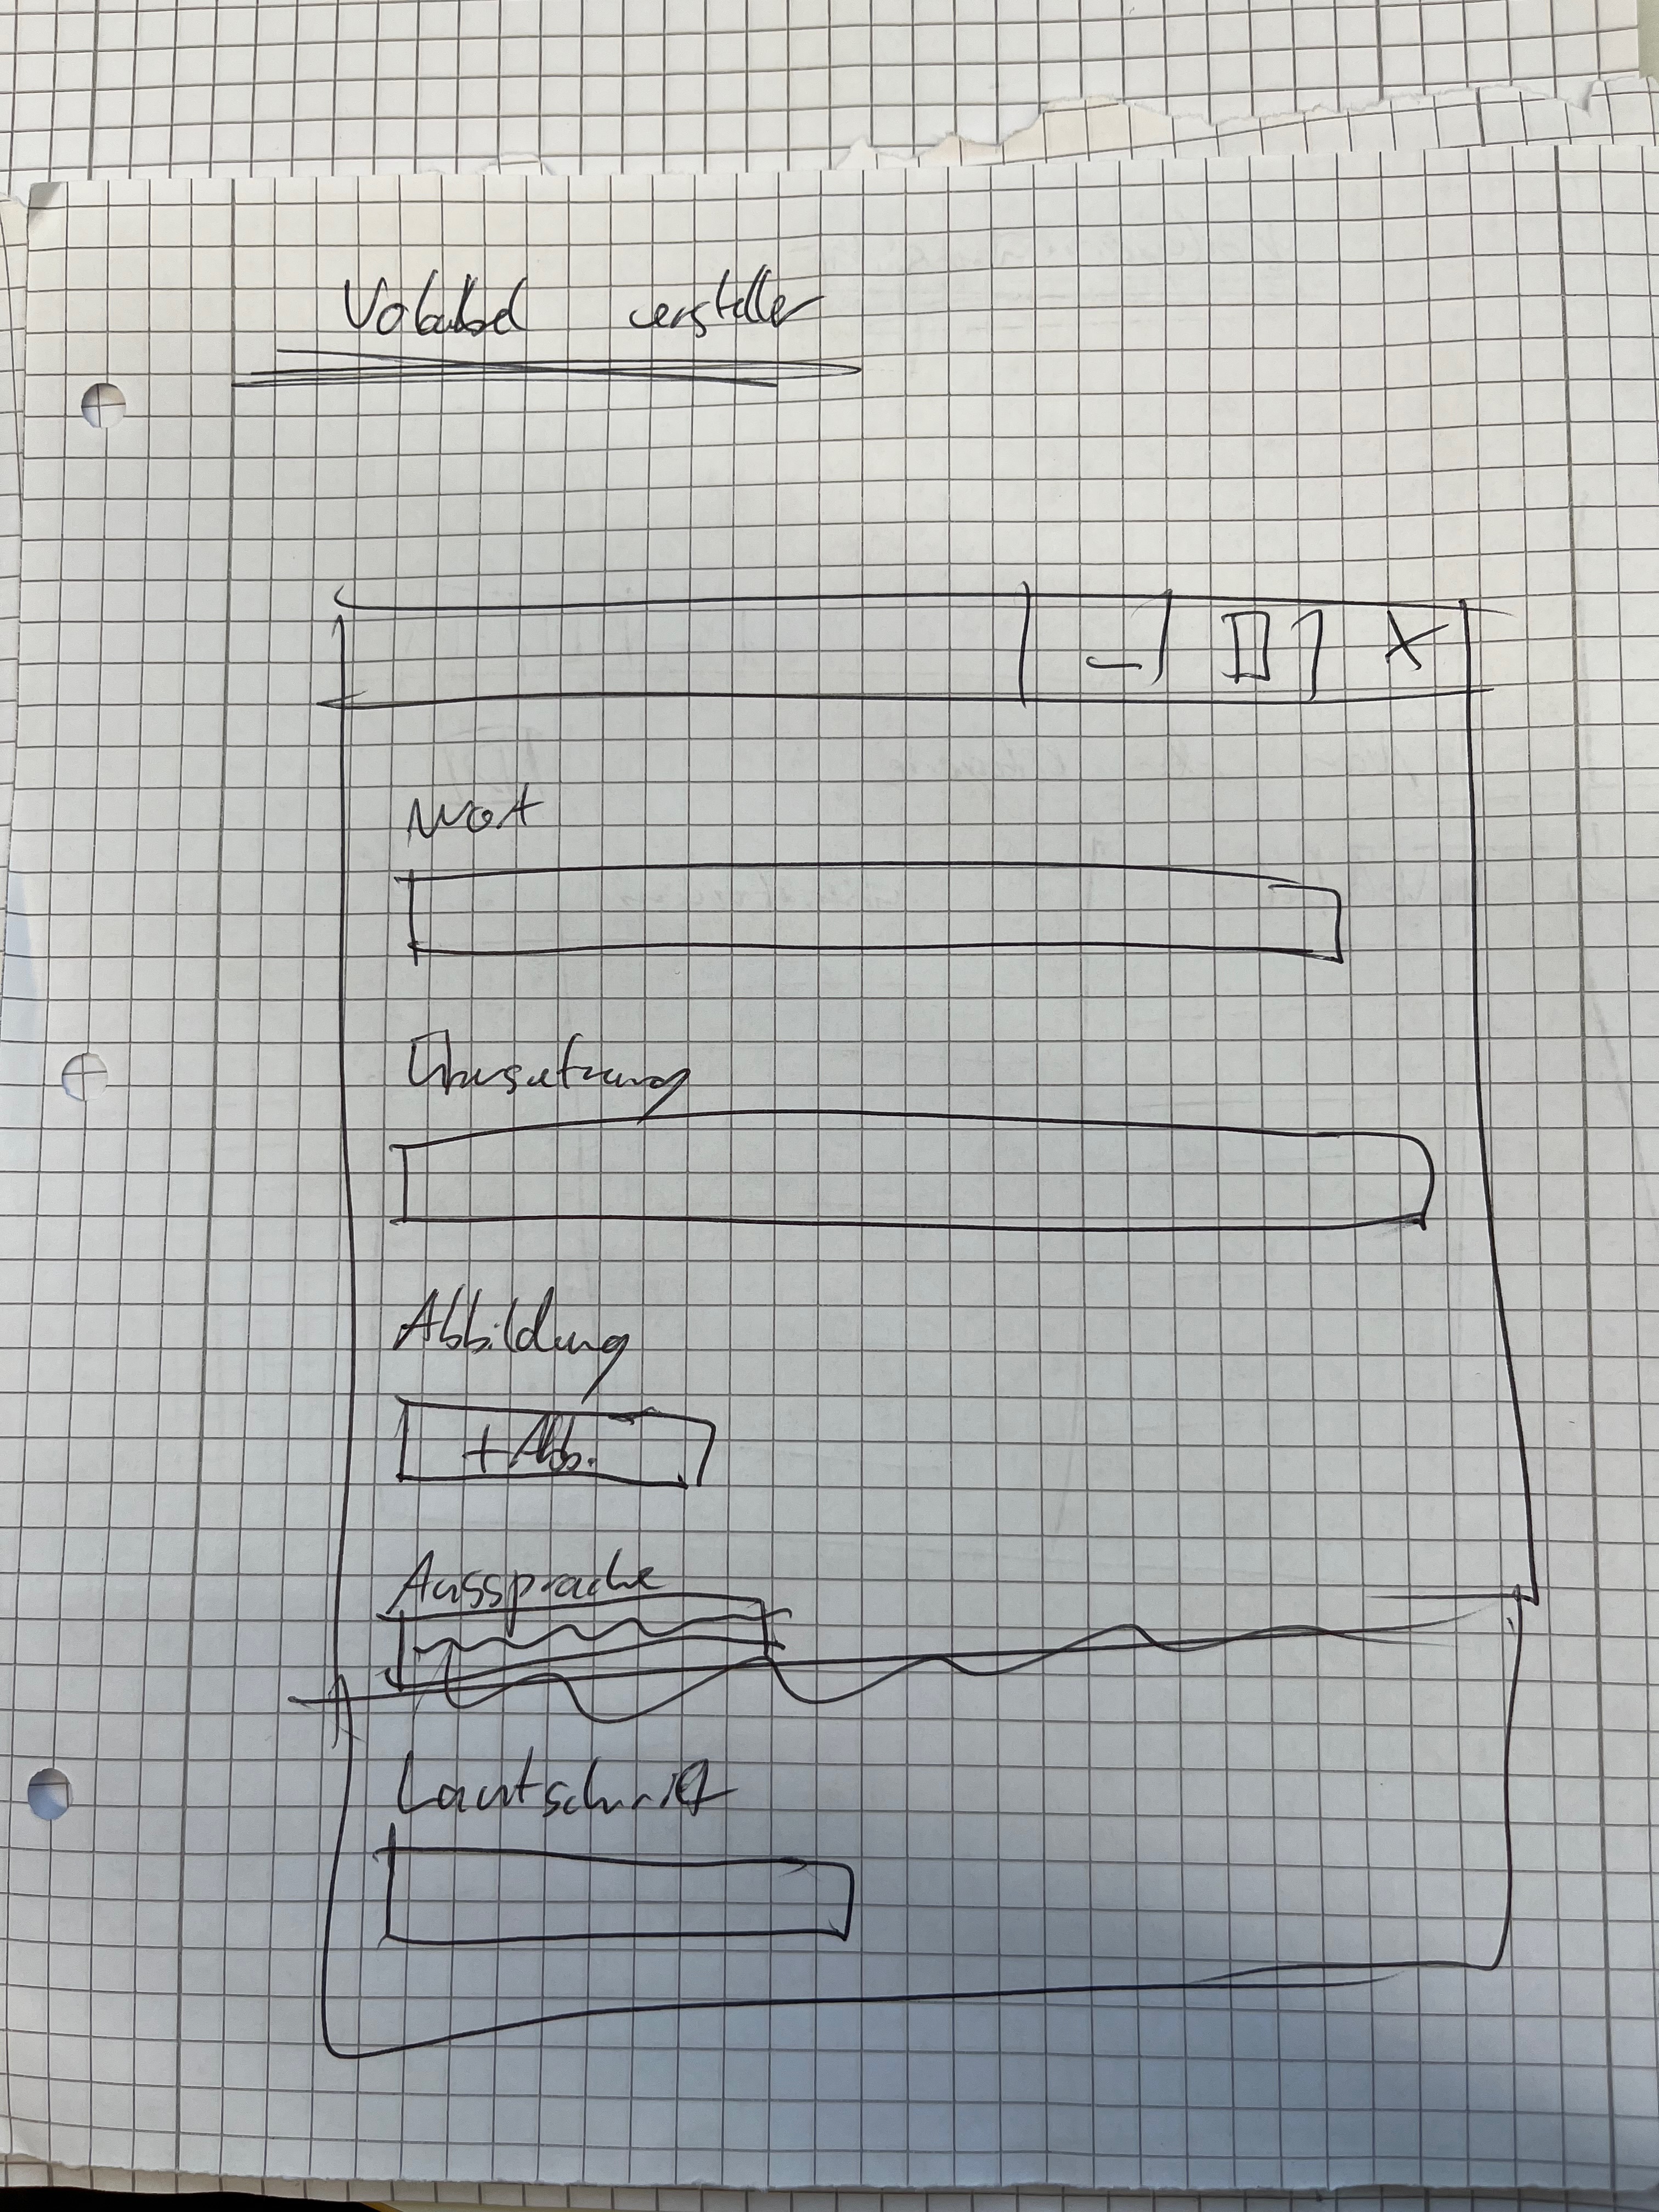 Vokabel ersteller
_ X
Wort
Übersetzung
Abbildung
+ Abb.
Aussprache
Lautschrift